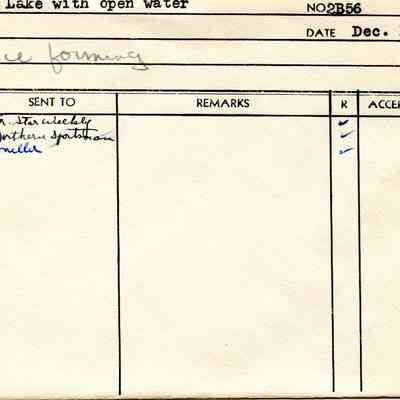 Lake with open water
NO 2B56
DATE Dec.
ice forming
SENT TO REMARKS R ACCEP
r. Star Weekly ✓
orthern Sportsman ✓
✓